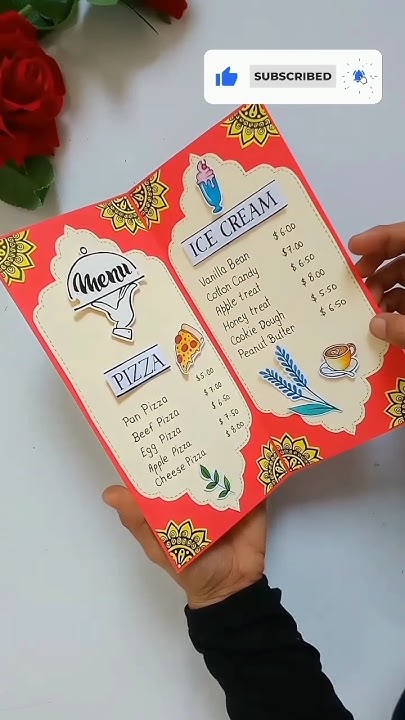 SUBSCRIBED
Menu
PIZZA
Pan Pizza $5.00
Beef Pizza $7.00
Egg Pizza $6.50
Apple Pizza $7.50
Cheese Pizza $8.00
ICE CREAM
Vanilla Bean $6.00
Cotton Candy $7.00
Apple treat $6.50
Honey treat $8.00
Cookie Dough $5.50
Peanut Butter $6.50